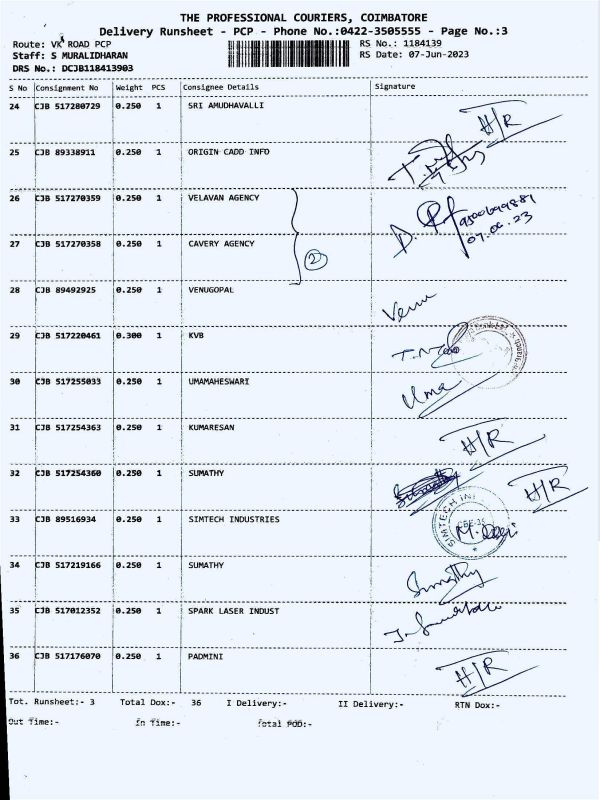 THE PROFESSIONAL COURIERS, COIMBATORE
Delivery Runsheet - PCP - Phone No.:0422-3505555 - Page No.:3
Route: VK ROAD PCP RS No.: 1184139
Staff: S MURALIDHARAN RS Date: 07-Jun-2023
DRS No.: DCJB118413903
S No Consignment No Weight PCS Consignee Details Signature
24 CJB 517280729 0.250 1 SRI AMUDHAVALLI H/R
25 CJB 89338911 0.250 1 ORIGIN CADD INFO
26 CJB 517270359 0.250 1 VELAVAN AGENCY
07.06.23
27 CJB 517270358 0.250 1 CAVERY AGENCY
2
28 CJB 89492925 0.250 1 VENUGOPAL Venu
29 CJB 517220461 0.300 1 KVB
30 CJB 517255033 0.250 1 UMAMAHESWARI Uma
31 CJB 517254363 0.250 1 KUMARESAN H/R
32 CJB 517254360 0.250 1 SUMATHY H/R
33 CJB 89516934 0.250 1 SIMTECH INDUSTRIES SIMTECH M. Devi
34 CJB 517219166 0.250 1 SUMATHY Sumathy
35 CJB 517012352 0.250 1 SPARK LASER INDUST
36 CJB 517176070 0.250 1 PADMINI H/R
Tot. Runsheet:- 3 Total Dox:- 36 I Delivery:- II Delivery:- RTN Dox:-
Out Time:- In Time:- Total POD:-